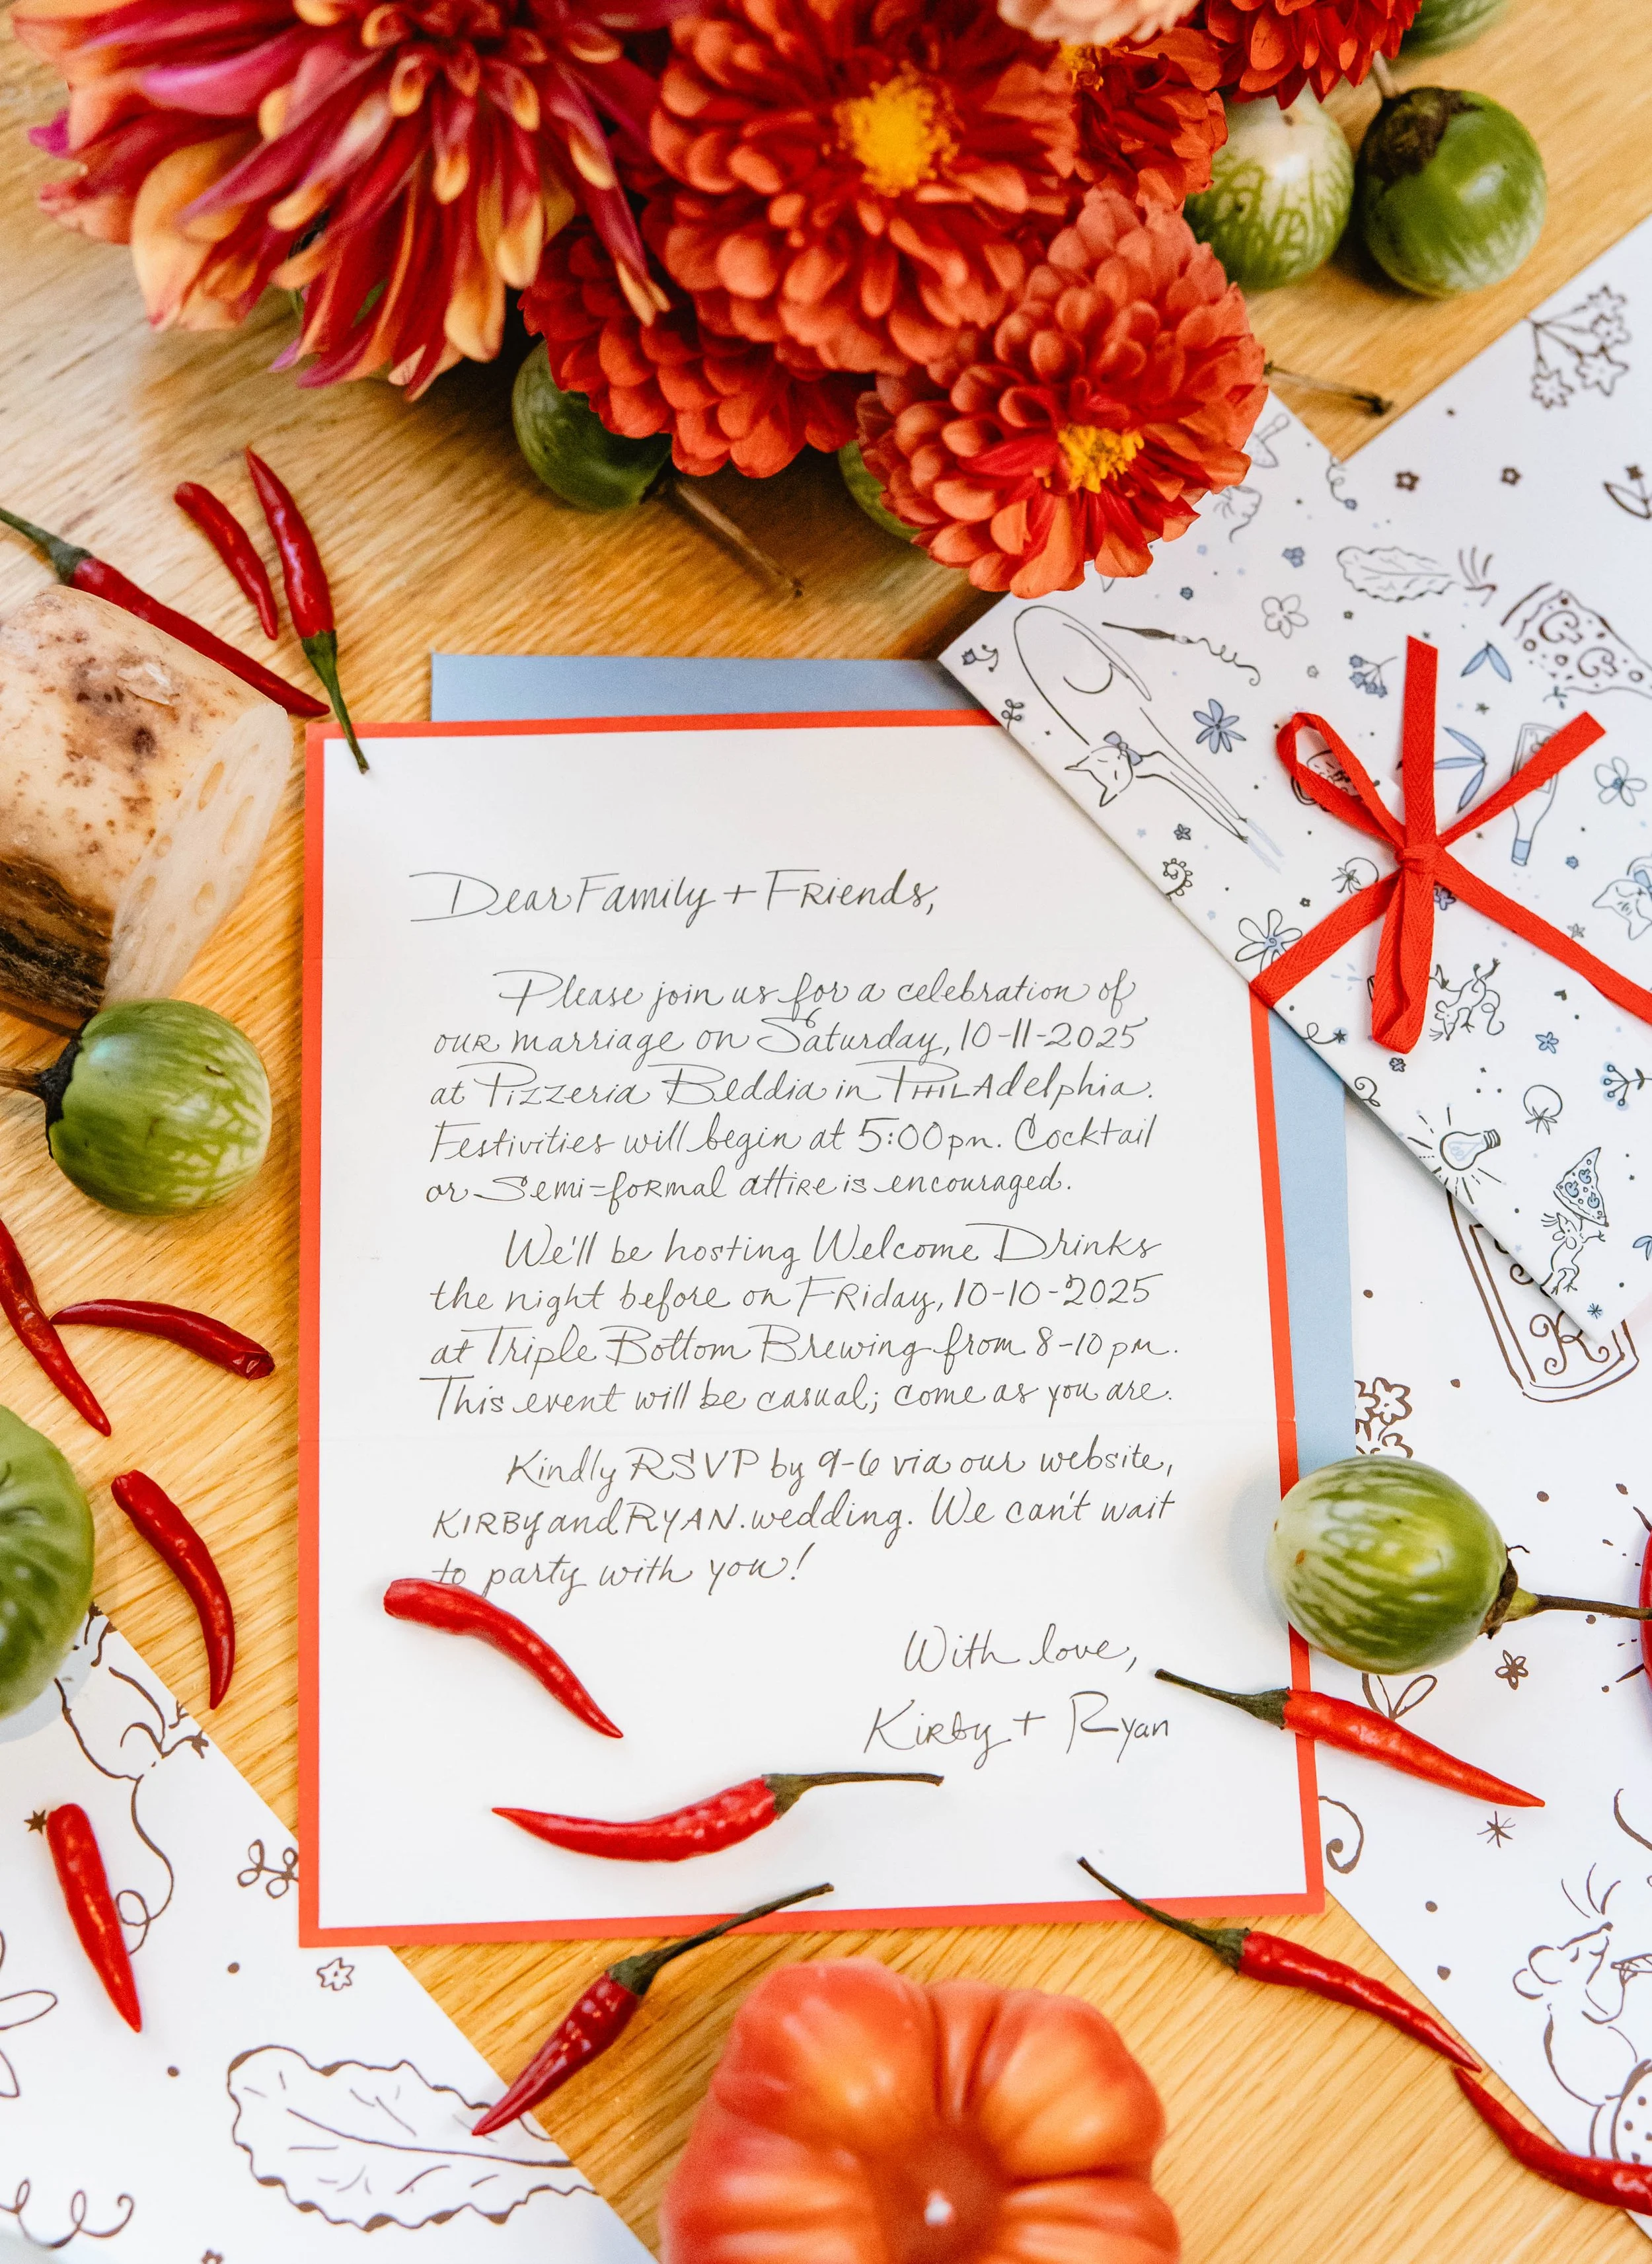 Dear Family + Friends,
Please join us for a celebration of
our marriage on Saturday, 10-11-2025
at Pizzeria Beddia in Philadelphia.
Festivities will begin at 5:00pm. Cocktail
or Semi-formal attire is encouraged.
We'll be hosting Welcome Drinks
the night before on Friday, 10-10-2025
at Triple Bottom Brewing from 8-10 pm.
This event will be casual; come as you are.
Kindly RSVP by 9-6 via our website,
KIRBYandRYAN.wedding. We can't wait
to party with you!
With love,
Kirby + Ryan